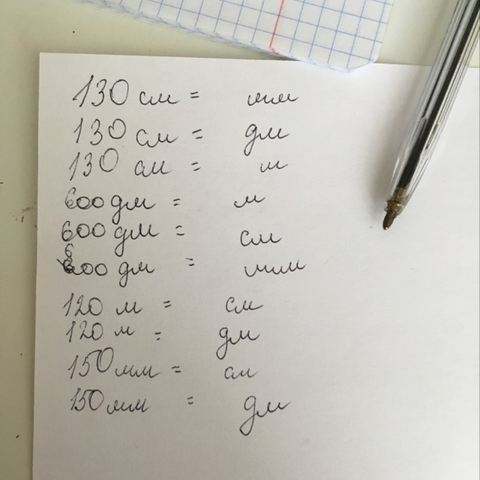 130 см = мм
130 см = дм
130 см = м
600 дм = м
600 дм = см
600 дм = мм
120 м = см
120 м = дм
150 мм = см
150 мм = дм